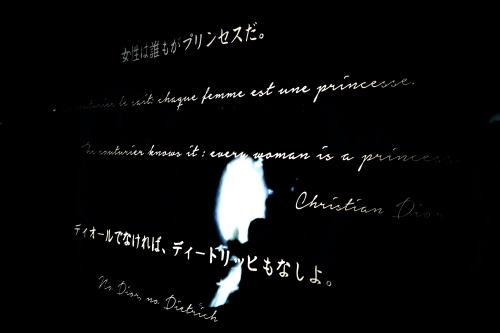 女性は誰もがプリンセスだ。
couturier le sait: chaque femme est une princesse.
The couturier knows it: every woman is a princess
Christian Dior
ディオールでなければ、ディートリッヒもなしよ。
No Dior, no Dietrich